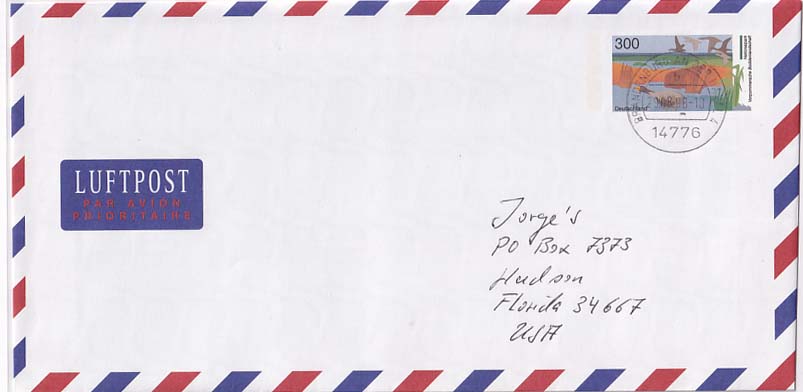 300
Deutschland
14776
LUFTPOST
PAR AVION
PRIORITAIRE
Jorge's
PO Box 7373
Hudson
Florida 34667
USA